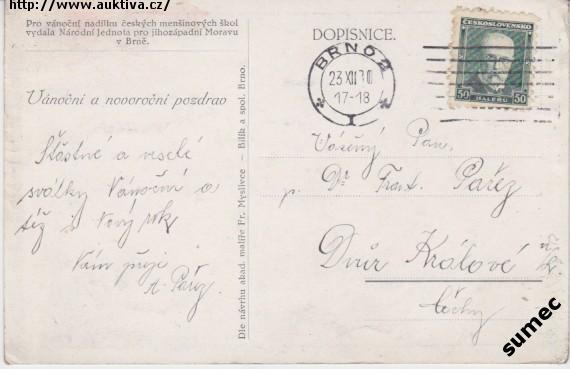 http://www.auktiva.cz/
Pro vánoční nadílku českých menšinových škol
vydala Národní Jednota pro jihozápadní Moravu
v Brně.
Vánoční a novoroční pozdrav
Šťastné a veselé
svátky Vánoční a
též i Nový rok
Vám přeje
A. Pařez.
Dle návrhu akad. malíře Fr. Myslivce — Bílík a spol. Brno.
DOPISNICE.
BRNO 2
23 XII 30
17-18
I
ČESKOSLOVENSKO
50 HALÉŘŮ 50
Vážený Pan.
p. Dr Frant. Pařez
Dvůr Králové
n/L.
Čechy
sumec